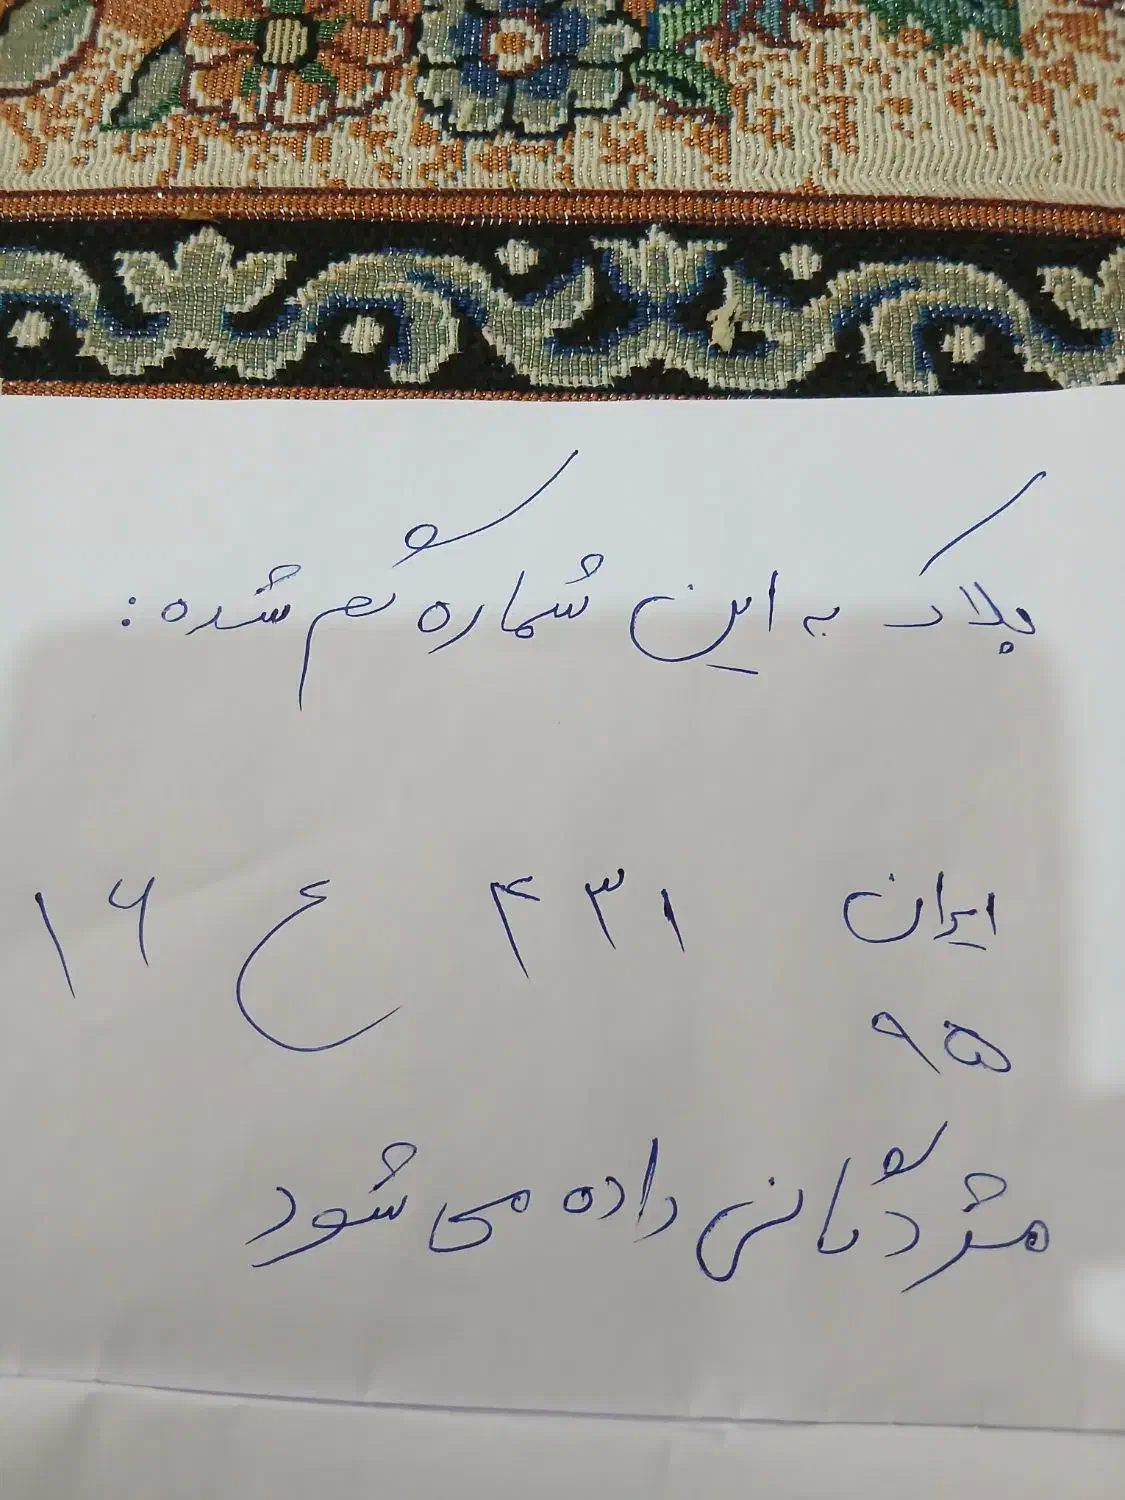 پلاک به این شماره گم شده:
۱۶ ع ۴۳۱ ایران
۹۵
مژدگانی داده می شود